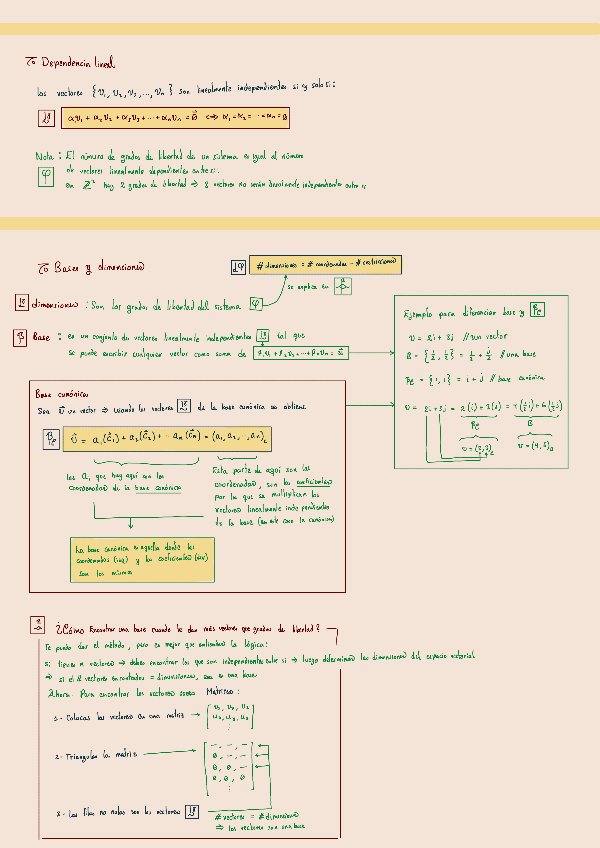 Dependencia lineal
Los vectores {v₁, v₂, v₃, ..., vₙ} son linealmente independientes si y solo si:
α₁v₁ + α₂v₂ + α₃v₃ + ... + αₙvₙ = 0 ⟺ α₁ = α₂ = ... = αₙ = 0
Nota: El número de grados de libertad de un sistema es igual al número
φ de vectores linealmente dependientes entre si:
en hay 2 grados de libertad ⇒ 8 vectores no serán linealmente independiente entre si
Bases y dimensiones
# dimensiones = # coordenadas - # restricciones
se explica en
dimensiones: Son los grados de libertad del sistema φ
Base: es un conjunto de vectores linealmente independientes tal que
se puede escribir cualquier vector como suma de
Ejemplo para diferenciar base y Bc
v = 2i + 3j // un vector
B = {½, ½} = i/2 + j/2 // una base
Bc = {1, 1} = i + j // base canónica
v = 2i + 3j = 2(i) + 3(j) = 4(½i) + 6(½j)
Bc B
v = (2,3) v = (4,6)
Base canónica
Sea v un vector ⇒ cuando los vectores de la base canónica se obtiene
Bc v = a₁(e₁) + a₂(e₂) + ... aₙ(eₙ) = (a₁, a₂, ..., aₙ)c
las a, que hay aquí son las
coordenadas de la base canónica
Esta parte de aquí son las
coordenadas, son los coeficientes
por lo que se multiplican los
vectores linealmente independientes
de la base (en este caso la canónica)
La base canónica es aquella donde las
coordenadas y los coeficientes
son los mismos
¿Cómo Encontrar una base cuando te dan más vectores que grados de libertad?
Te puedo dar el método, pero es mejor que entiendas la lógica:
Si tienes n vectores ⇒ debes encontrar los que son independientes entre si ⇒ luego determinas las dimensiones del espacio vectorial
⇒ si el # vectores encontrados = dimensiones, esa es una base
Ahora: Para encontrar los vectores usamos Matrices:
1- Colocas los vectores en una matriz →
2- Triangulas la matriz
3- Las filas no nulas son los vectores
# vectores = # dimensiones
⇒ los vectores son una base